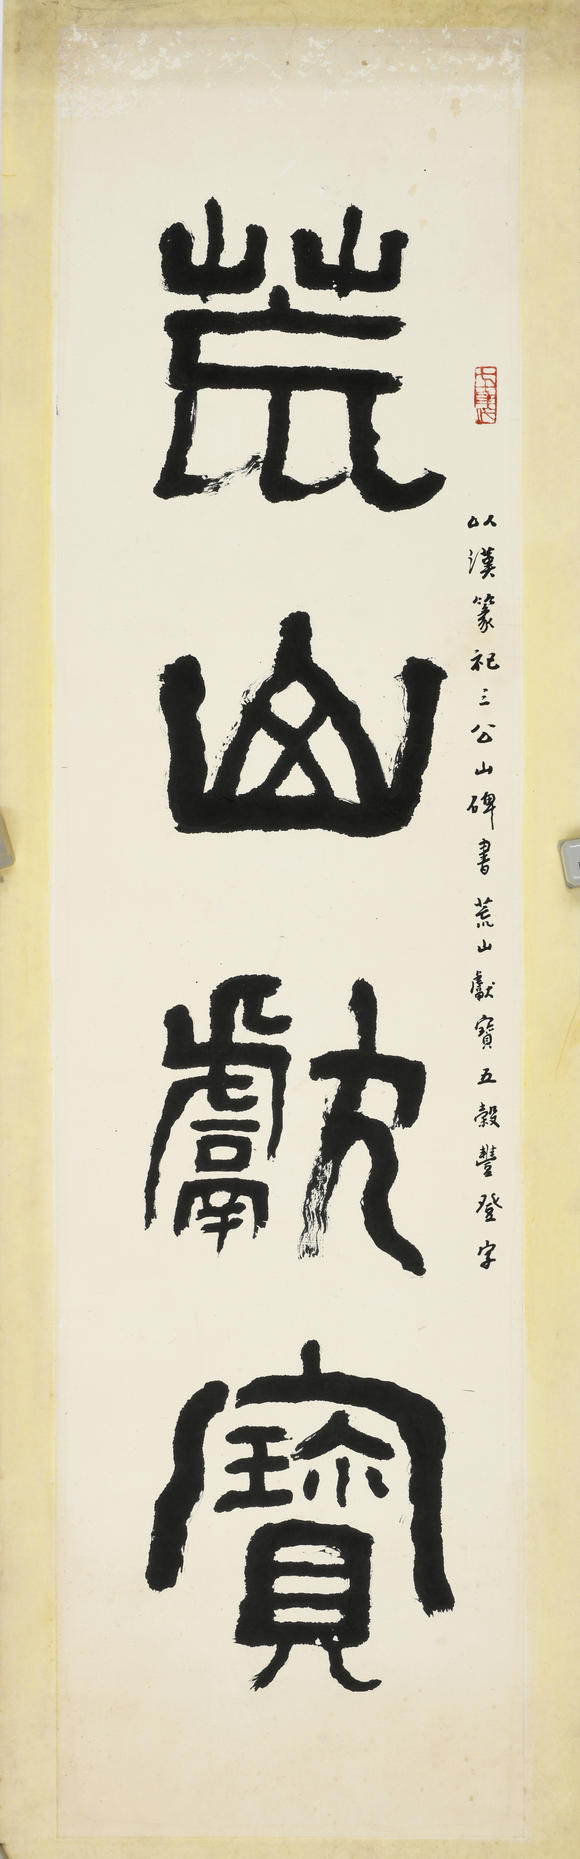 以漢篆祀三公山碑書荒山獻寶五穀豐登字
荒山獻寶